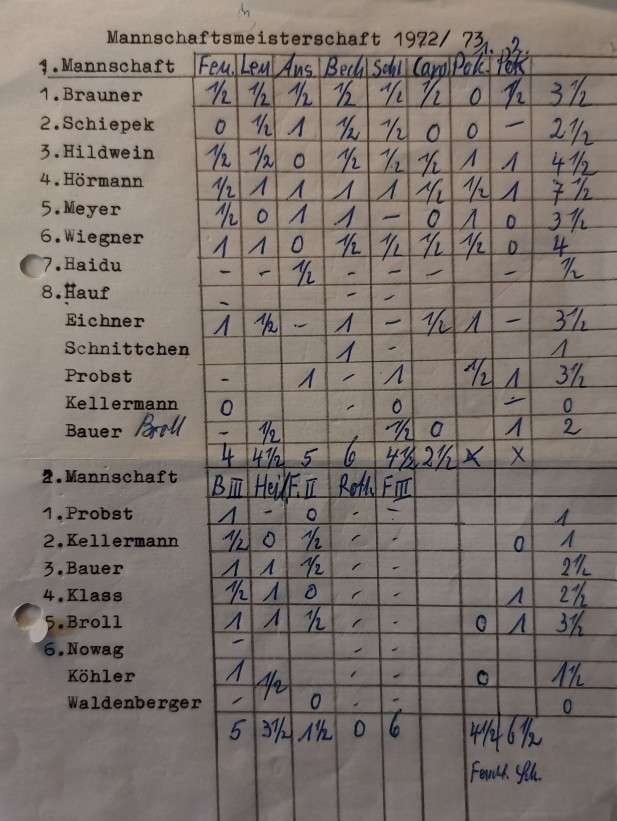 Mannschaftsmeisterschaft 1972/ 73
1. 2.
1.Mannschaft Feu. Leu Ans Bech Schl Caro Pok. Pok
1.Brauner ½ ½ ½ ½ ½ ½ 0 ½ 3½
2.Schiepek 0 ½ 1 ½ ½ 0 0 – 2½
3.Hildwein ½ ½ 0 ½ ½ ½ 1 1 4½
4.Hörmann ½ 1 1 1 1 ½ ½ 1 7½
5.Meyer ½ 0 1 1 – 0 1 0 3½
6.Wiegner 1 1 0 ½ ½ ½ ½ 0 4
7.Haidu – – ½ – – – – ½
8.Hauf – – –
Eichner 1 ½ – 1 – ½ 1 – 3½
Schnittchen 1 – 1
Probst – 1 – 1 ½ 1 3½
Kellermann 0 – 0 – 0
Bauer Broll – ½ ½ 0 1 2
4 4½ 5 6 4½ 2½ x x
2.Mannschaft B III Heil F. II Roth F III
1.Probst 1 – 0 – – 1
2.Kellermann ½ 0 ½ – – 0 1
3.Bauer 1 1 ½ – – 2½
4.Klass ½ 1 0 – – 1 2½
5.Broll 1 1 ½ – – 0 1 3½
6.Nowag – – –
Köhler 1 ½ – – 0 1½
Waldenberger – 0 – – 0
5 3½ 1½ 0 6 4½ 6½